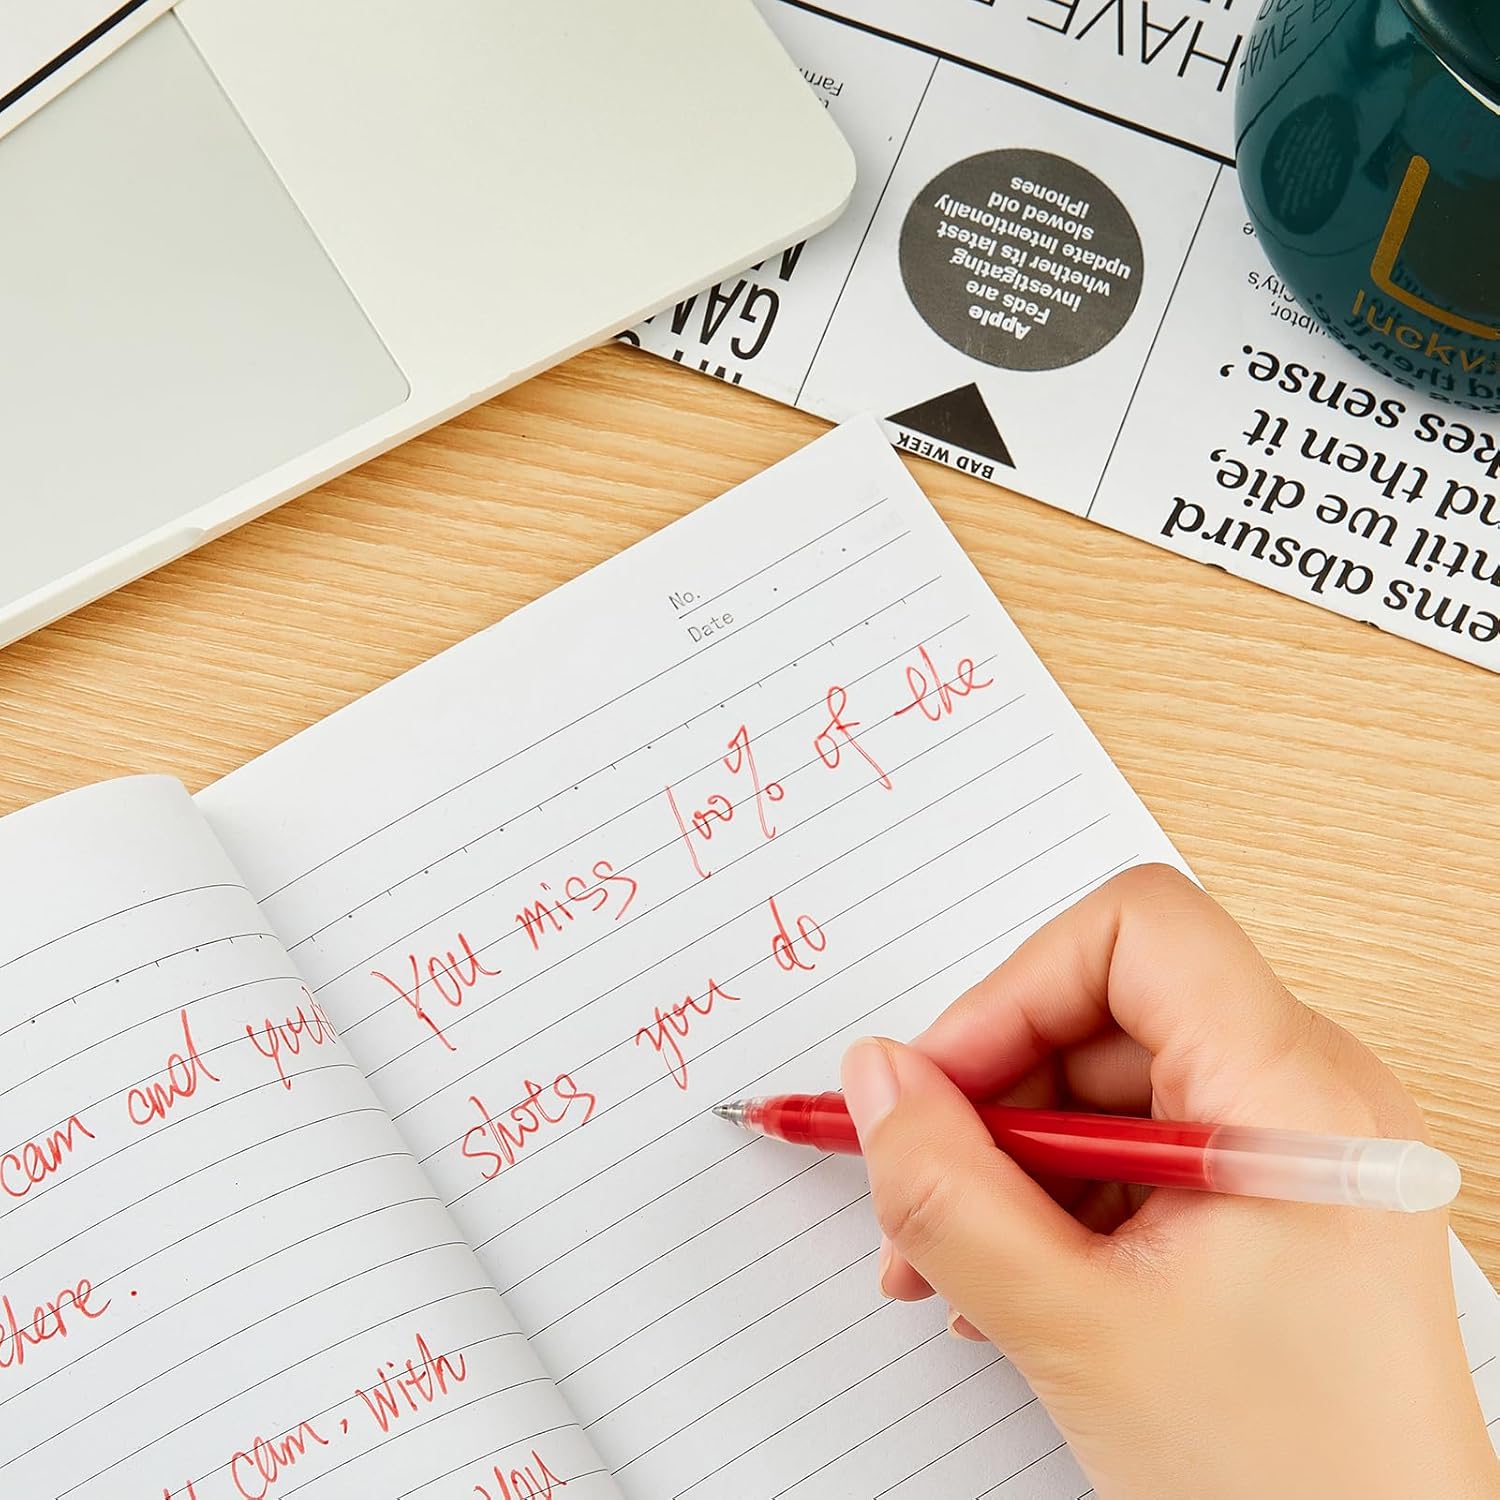 HAVE
Farm
Apple
Feds are
investigating
whether its latest
update intentionally
slowed old
iPhones
BAD WEEK
GAM
absurd
until we die,
and then it
makes sense.'
sculptor,
City's
lucky
No.
Date
You miss 100% of the
shots you do
cam and you
here.
cam, with
you